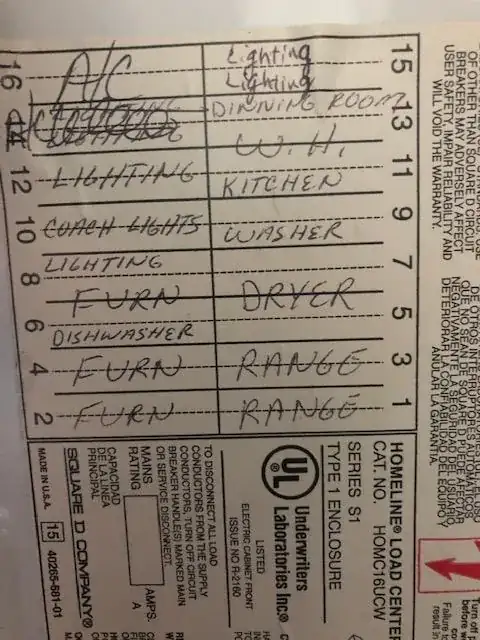 15 Lighting
Lighting
16 A/C
13 DINNING ROOM
14
W. H.
11
12 LIGHTING
KITCHEN
9
10 COACH LIGHTS
WASHER
7
8 LIGHTING
FURN DRYER
5
6 DISHWASHER
3 RANGE
4 FURN
1 RANGE
2 FURN
OF OTHER THAN SQUARE D CIRCUIT
BREAKERS MAY ADVERSELY AFFECT
USER SAFETY, IMPAIR RELIABILITY AND
SALL VOID THE WARRANTY.
DE OTROS INTERRUPTORES AUTOMATICOS
QUE NO SEAN DE SQUARE D PUEDE AFECTAR
NEGATIVAMENTE LA SEGURIDAD DEL USUARIO,
DETERIORAR LA CONFIABILIDAD DEL EQUIPO Y
ANULAR LA GARANTIA.
HOMELINE® LOAD CENTER
CAT. NO. HOMC16UCW
SERIES S1
TYPE 1 ENCLOSURE
UL
Underwriters
Laboratories Inc.®
LISTED
ELECTRIC CABINET FRONT
ISSUE NO R-2160
TO DISCONNECT ALL LOAD
CONDUCTORS FROM THE SUPPLY
CONDUCTORS, TURN OFF CIRCUIT
BREAKER HANDLE(S) MARKED MAIN
OR SERVICE DISCONNECT.
MAINS
RATING
AMPS.
A
CAPACIDAD
DE LA LINEA
PRINCIPAL
SQUARE D COMPANY®
MADE IN U.S.A.
15 40265-881-01
Turn off
before
Failure
result in